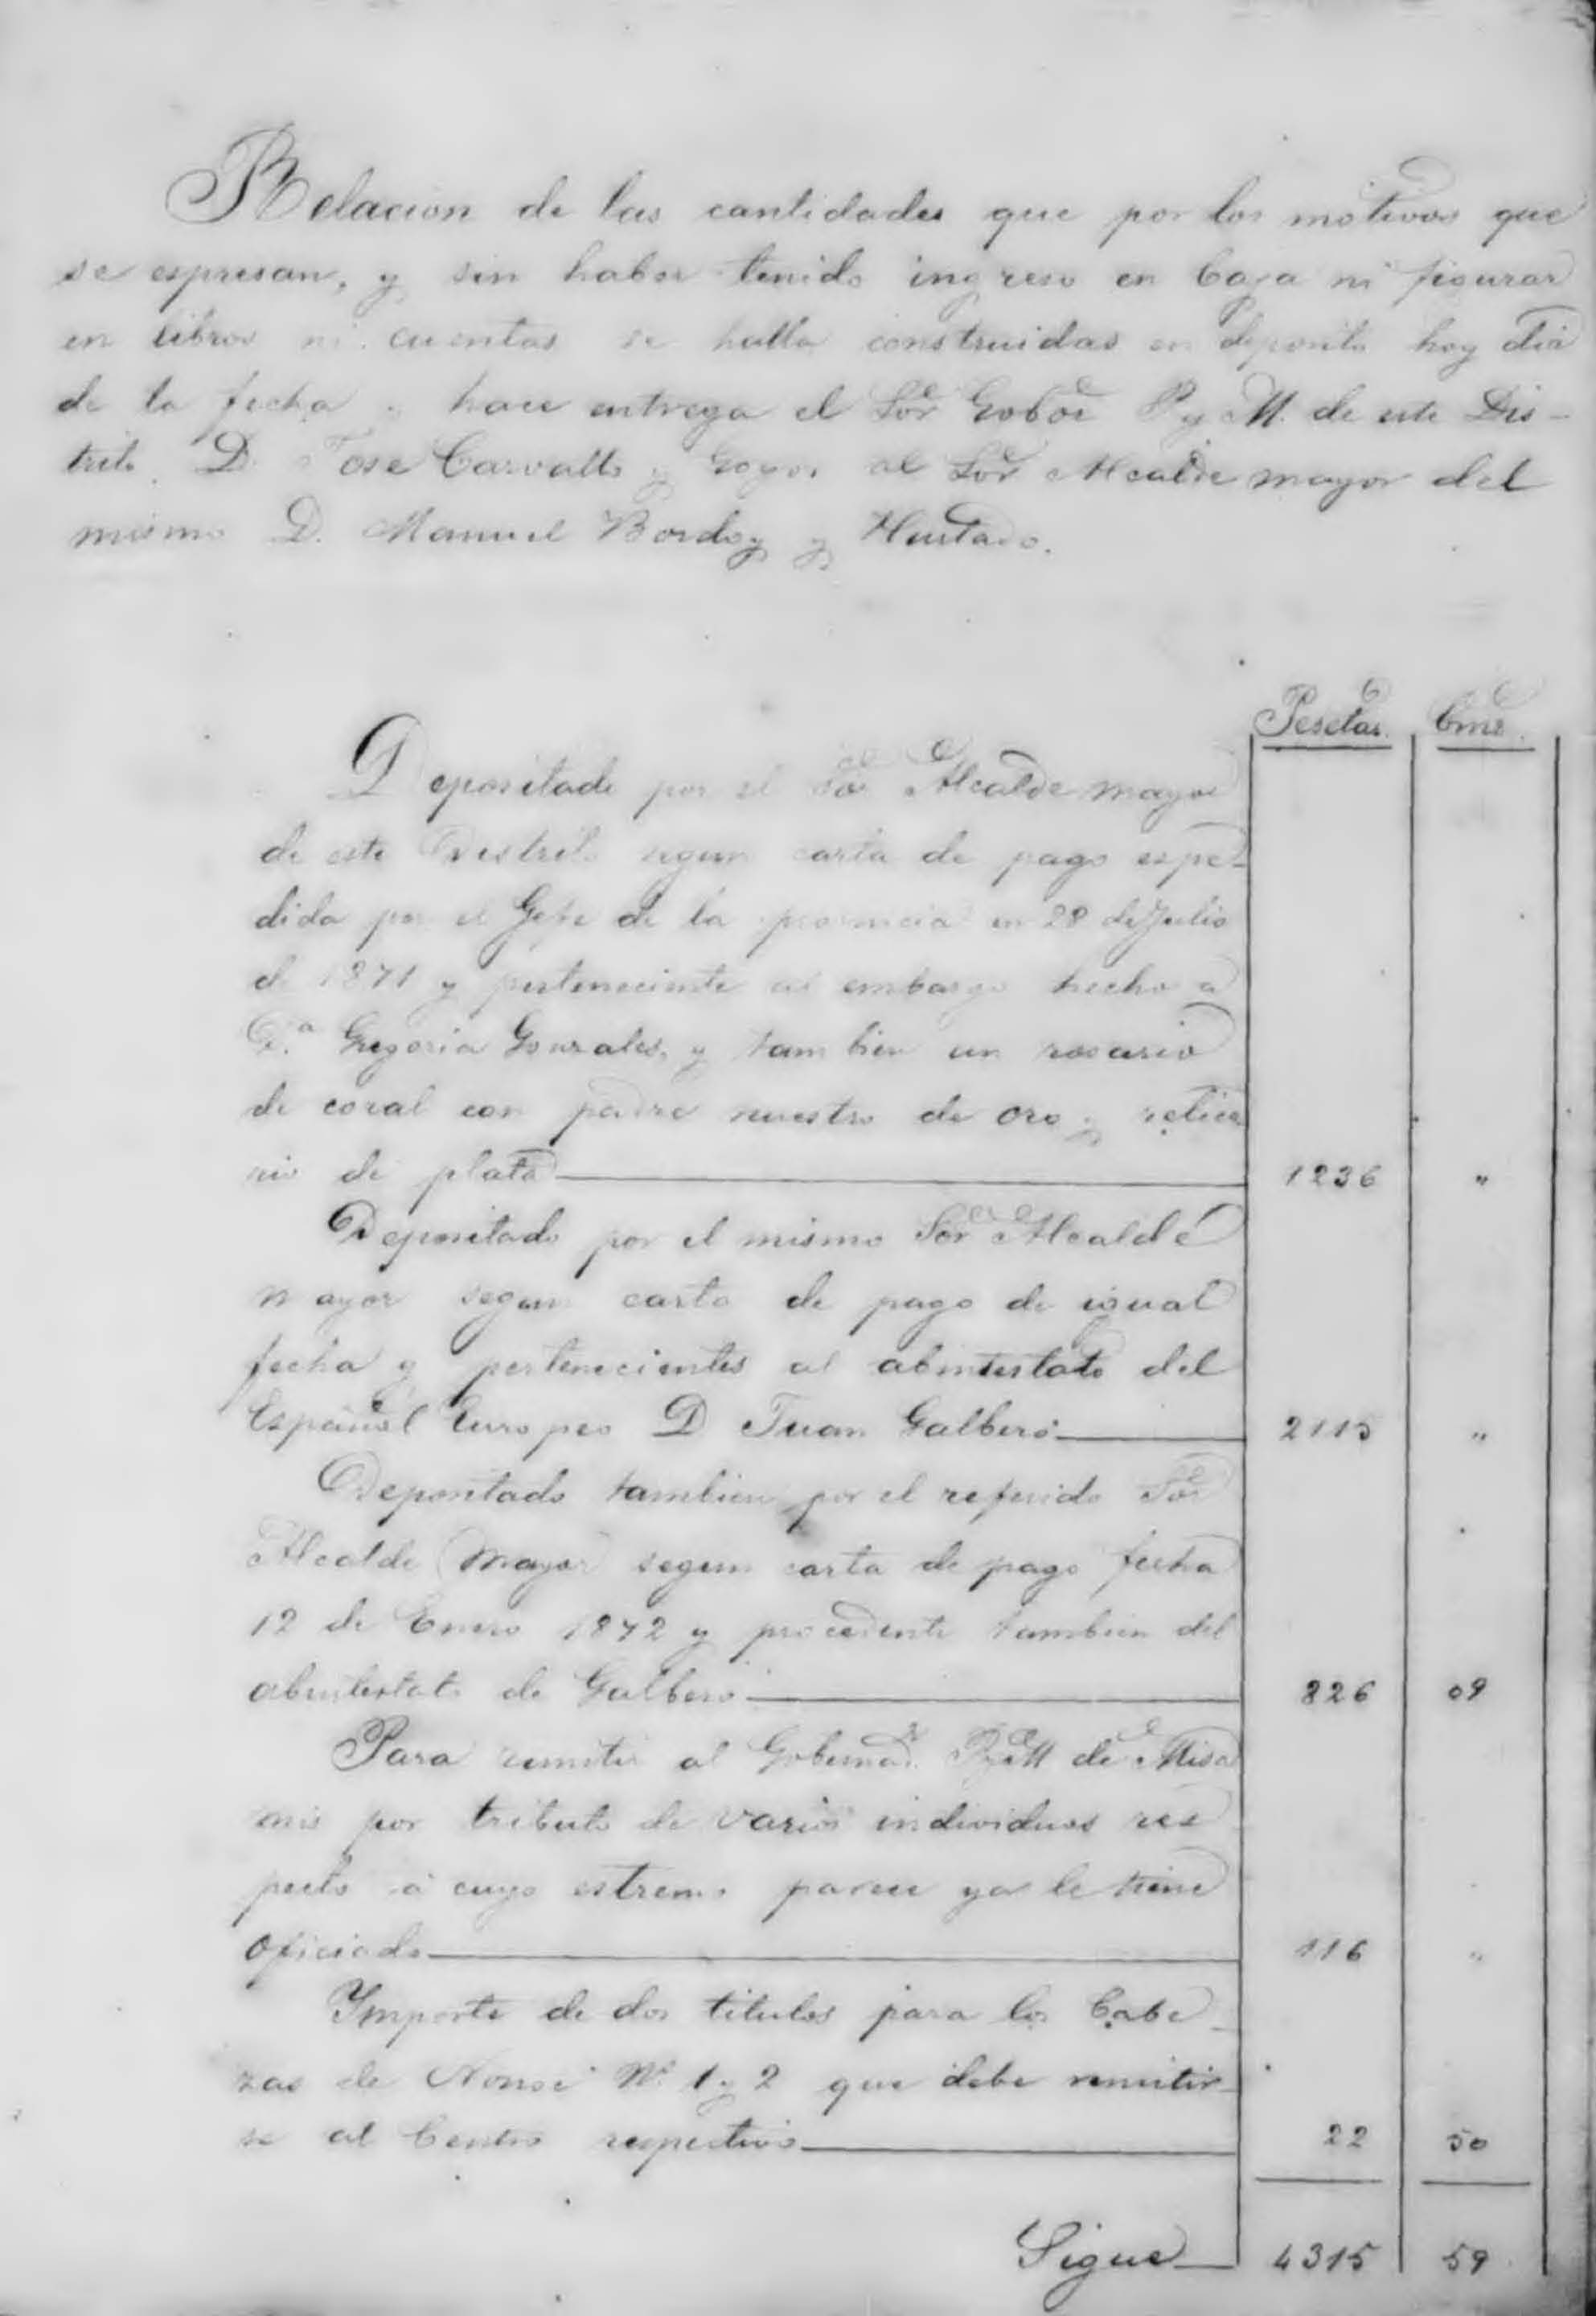 Relacion de las cantidades que por los motivos que
se espresan, y sin haber tenido ingreso en Caja ni figurar
en libros ni cuentas se halla construidas en deposito hoy dia
de la fecha y hace entrega el Sor Gobor P. y M. de este Dis-
trito D. Jose Carvallo y Goyos al Sor Alcalde mayor del
mismo D. Manuel Bordoy y Hurtado.
Pesetas. Cms.
Depositado por el Sor Alcalde mayor
de este Distrito segun carta de pago espe-
dida por el Gefe de la provincia en 28 de Julio
de 1871 y perteneciente al embargo hecho a
D.ª Gregoria Gonzales, y tambien un rosario
de coral con padre nuestro de oro y relica
rio de plata 1236 "
Depositado por el mismo Sor Alcalde
mayor segun carta de pago de igual
fecha y pertenecientes al abintestato del
Español Europeo D Juan Galbero 2115 "
Depositado tambien por el referido Sor
Alcalde mayor segun carta de pago fecha
12 de Enero 1872 y procedente tambien del
abintestato de Galbero 826 09
Para remitir al Gobernadr. P. y M de Misa
mis por tributo de varios individuos res
pecto á cuyo estremo parece ya le tiene
oficiado 116 "
Importe de dos titulos para los Cabe-
zas de Nº 1 y 2 que debe remitir-
se al Centro respectivo 22 50
Sigue 4315 59